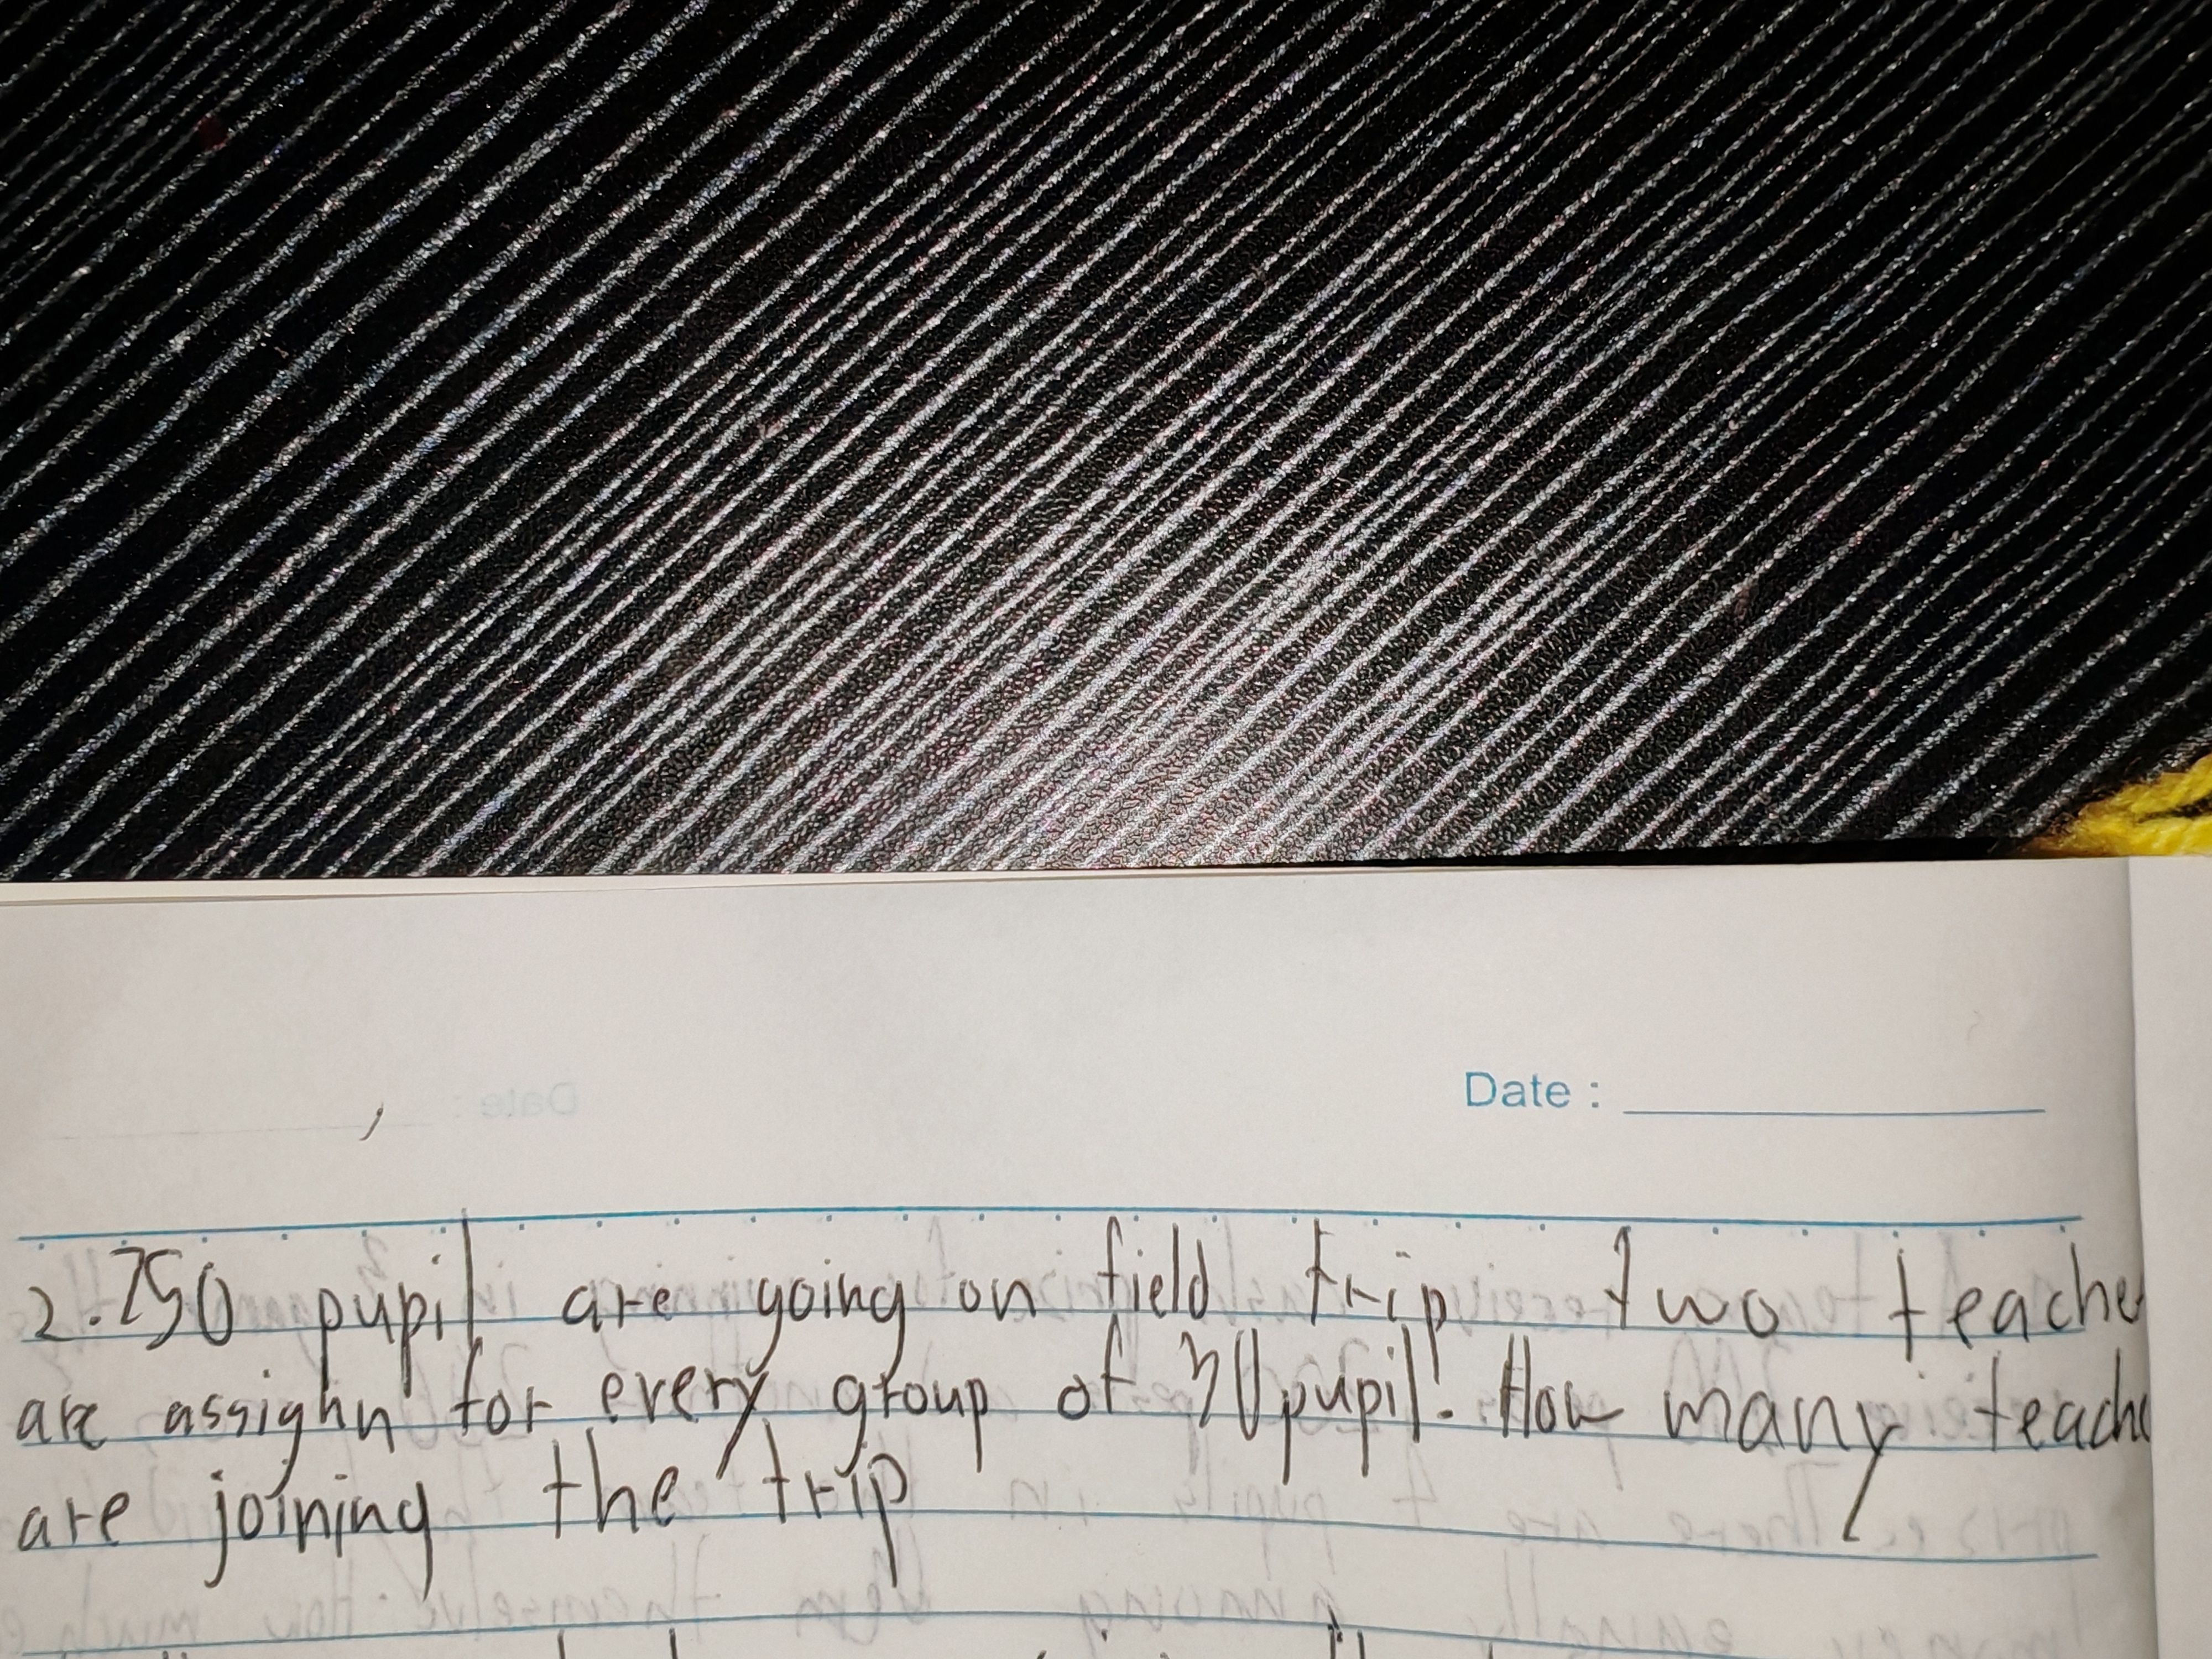 Date :
2. 750 pupil are going on field trip two teache
are assighn for every group of 30 pupil. How many teache
are joining the trip